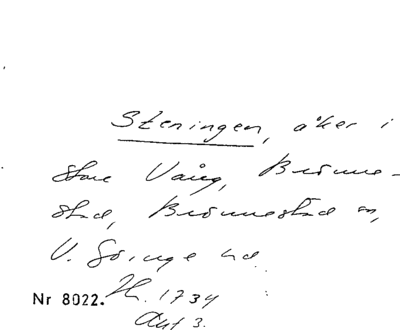 Steningen, åker i
store Vång, Brönne-
stad, Brönnestad sn,
V. Göinge hd.
Nr 8022. Lh. 1734
Akt 3.